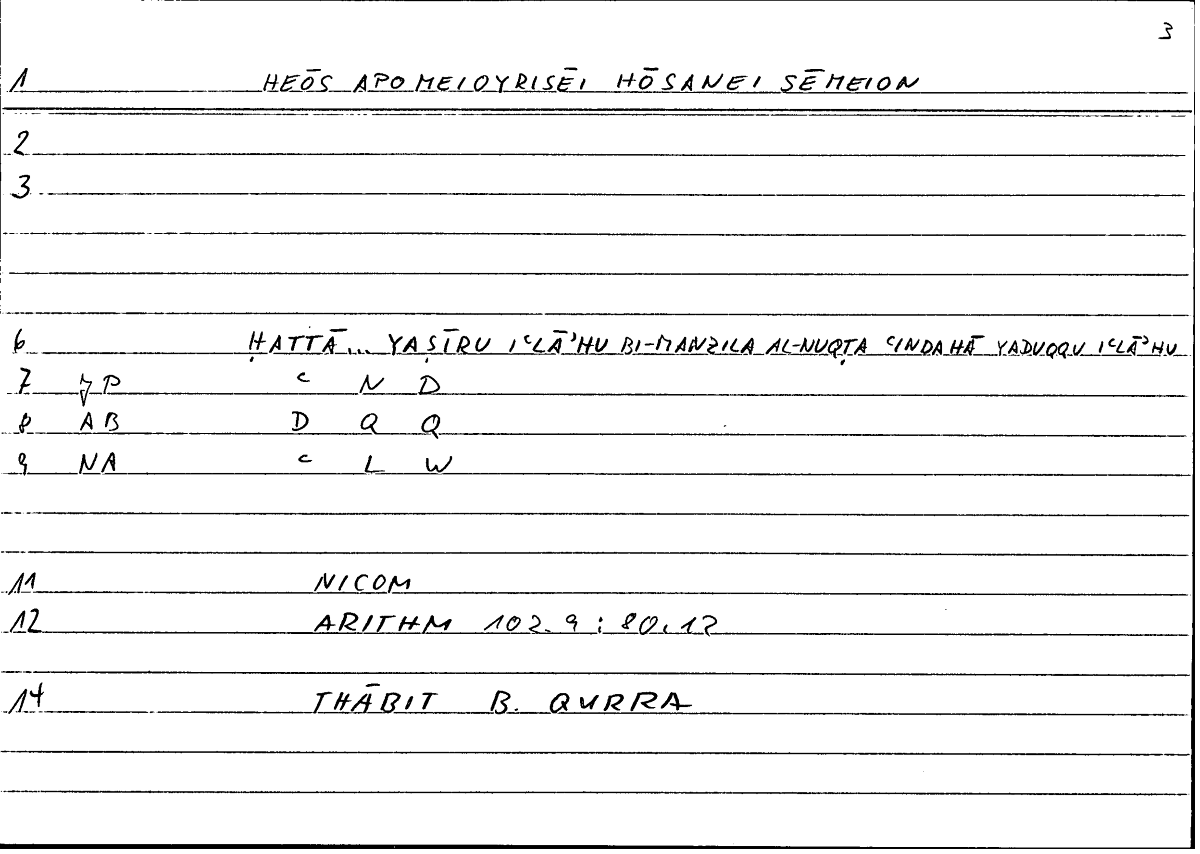 3
1 HEŌS APOMEIOYRISĒI HŌSANEI SĒMEION
2
3
6 ḤATTĀ... YAṢĪRU IʿLĀʾHU BI-MANZILA AL-NUQṬA ʿINDAHĀ YADUQQU IʿLĀʾHU
7 P ʿ N D
8 AB D Q Q
9 NA ʿ L W
11 NICOM
12 ARITHM 102.9 : 80.12
14 THĀBIT B. QURRA